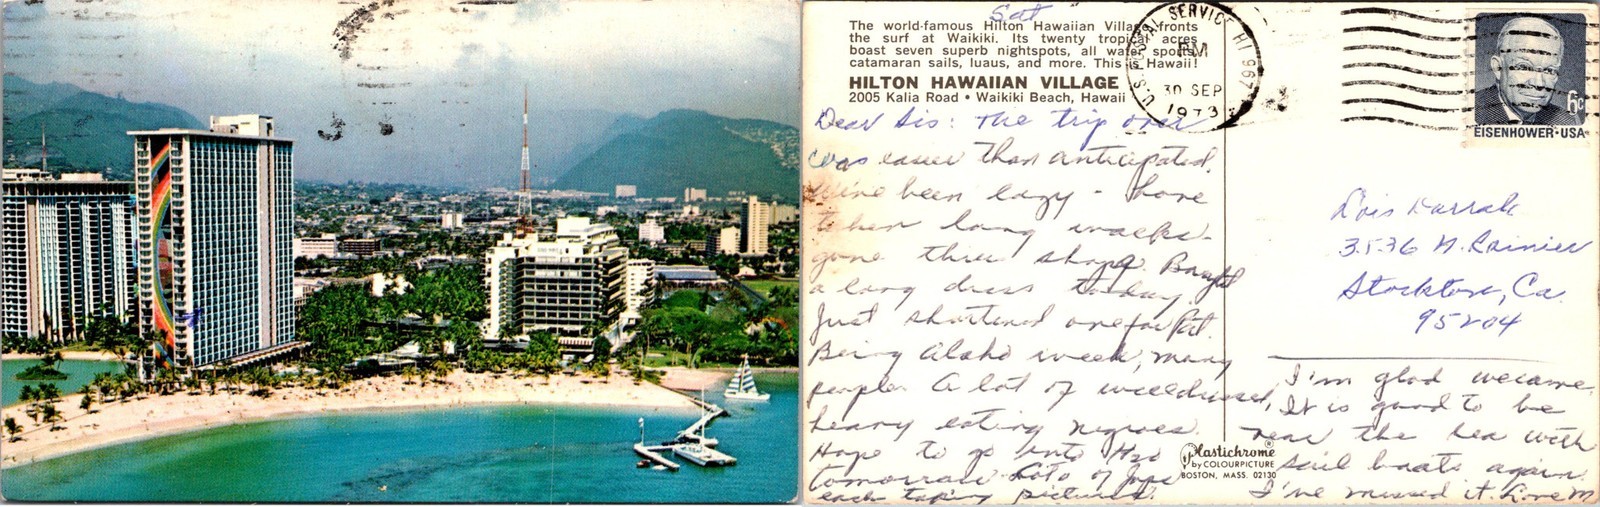 Sat
The world-famous Hilton Hawaiian Village fronts
the surf at Waikiki. Its twenty tropical acres
boast seven superb nightspots, all water sports,
catamaran sails, luaus, and more. This is Hawaii!
HILTON HAWAIIAN VILLAGE
2005 Kalia Road • Waikiki Beach, Hawaii
U.S. POSTAL SERVICE HI 967
PM
30 SEP
1973
6c
EISENHOWER·USA
Dear Sis: The trip over
was easier than anticipated.
We've been lazy - have
taken long walks -
gone thru shops. Bought
a long dress today.
Just shortened one for Pat.
Being Aloha week, many
people. A lot of welldressed,
heavy eating negroes.
Hope to go into H2O
tomorrow. Lots of Japs
each taking pictures.
Lois Darrah
3536 N. Rainier
Stockton, Ca.
95204
I'm glad we came.
It is good to be
near the sea with
sail boats again.
I've missed it. Love M
Plastichrome®
by COLOURPICTURE
BOSTON, MASS. 02130